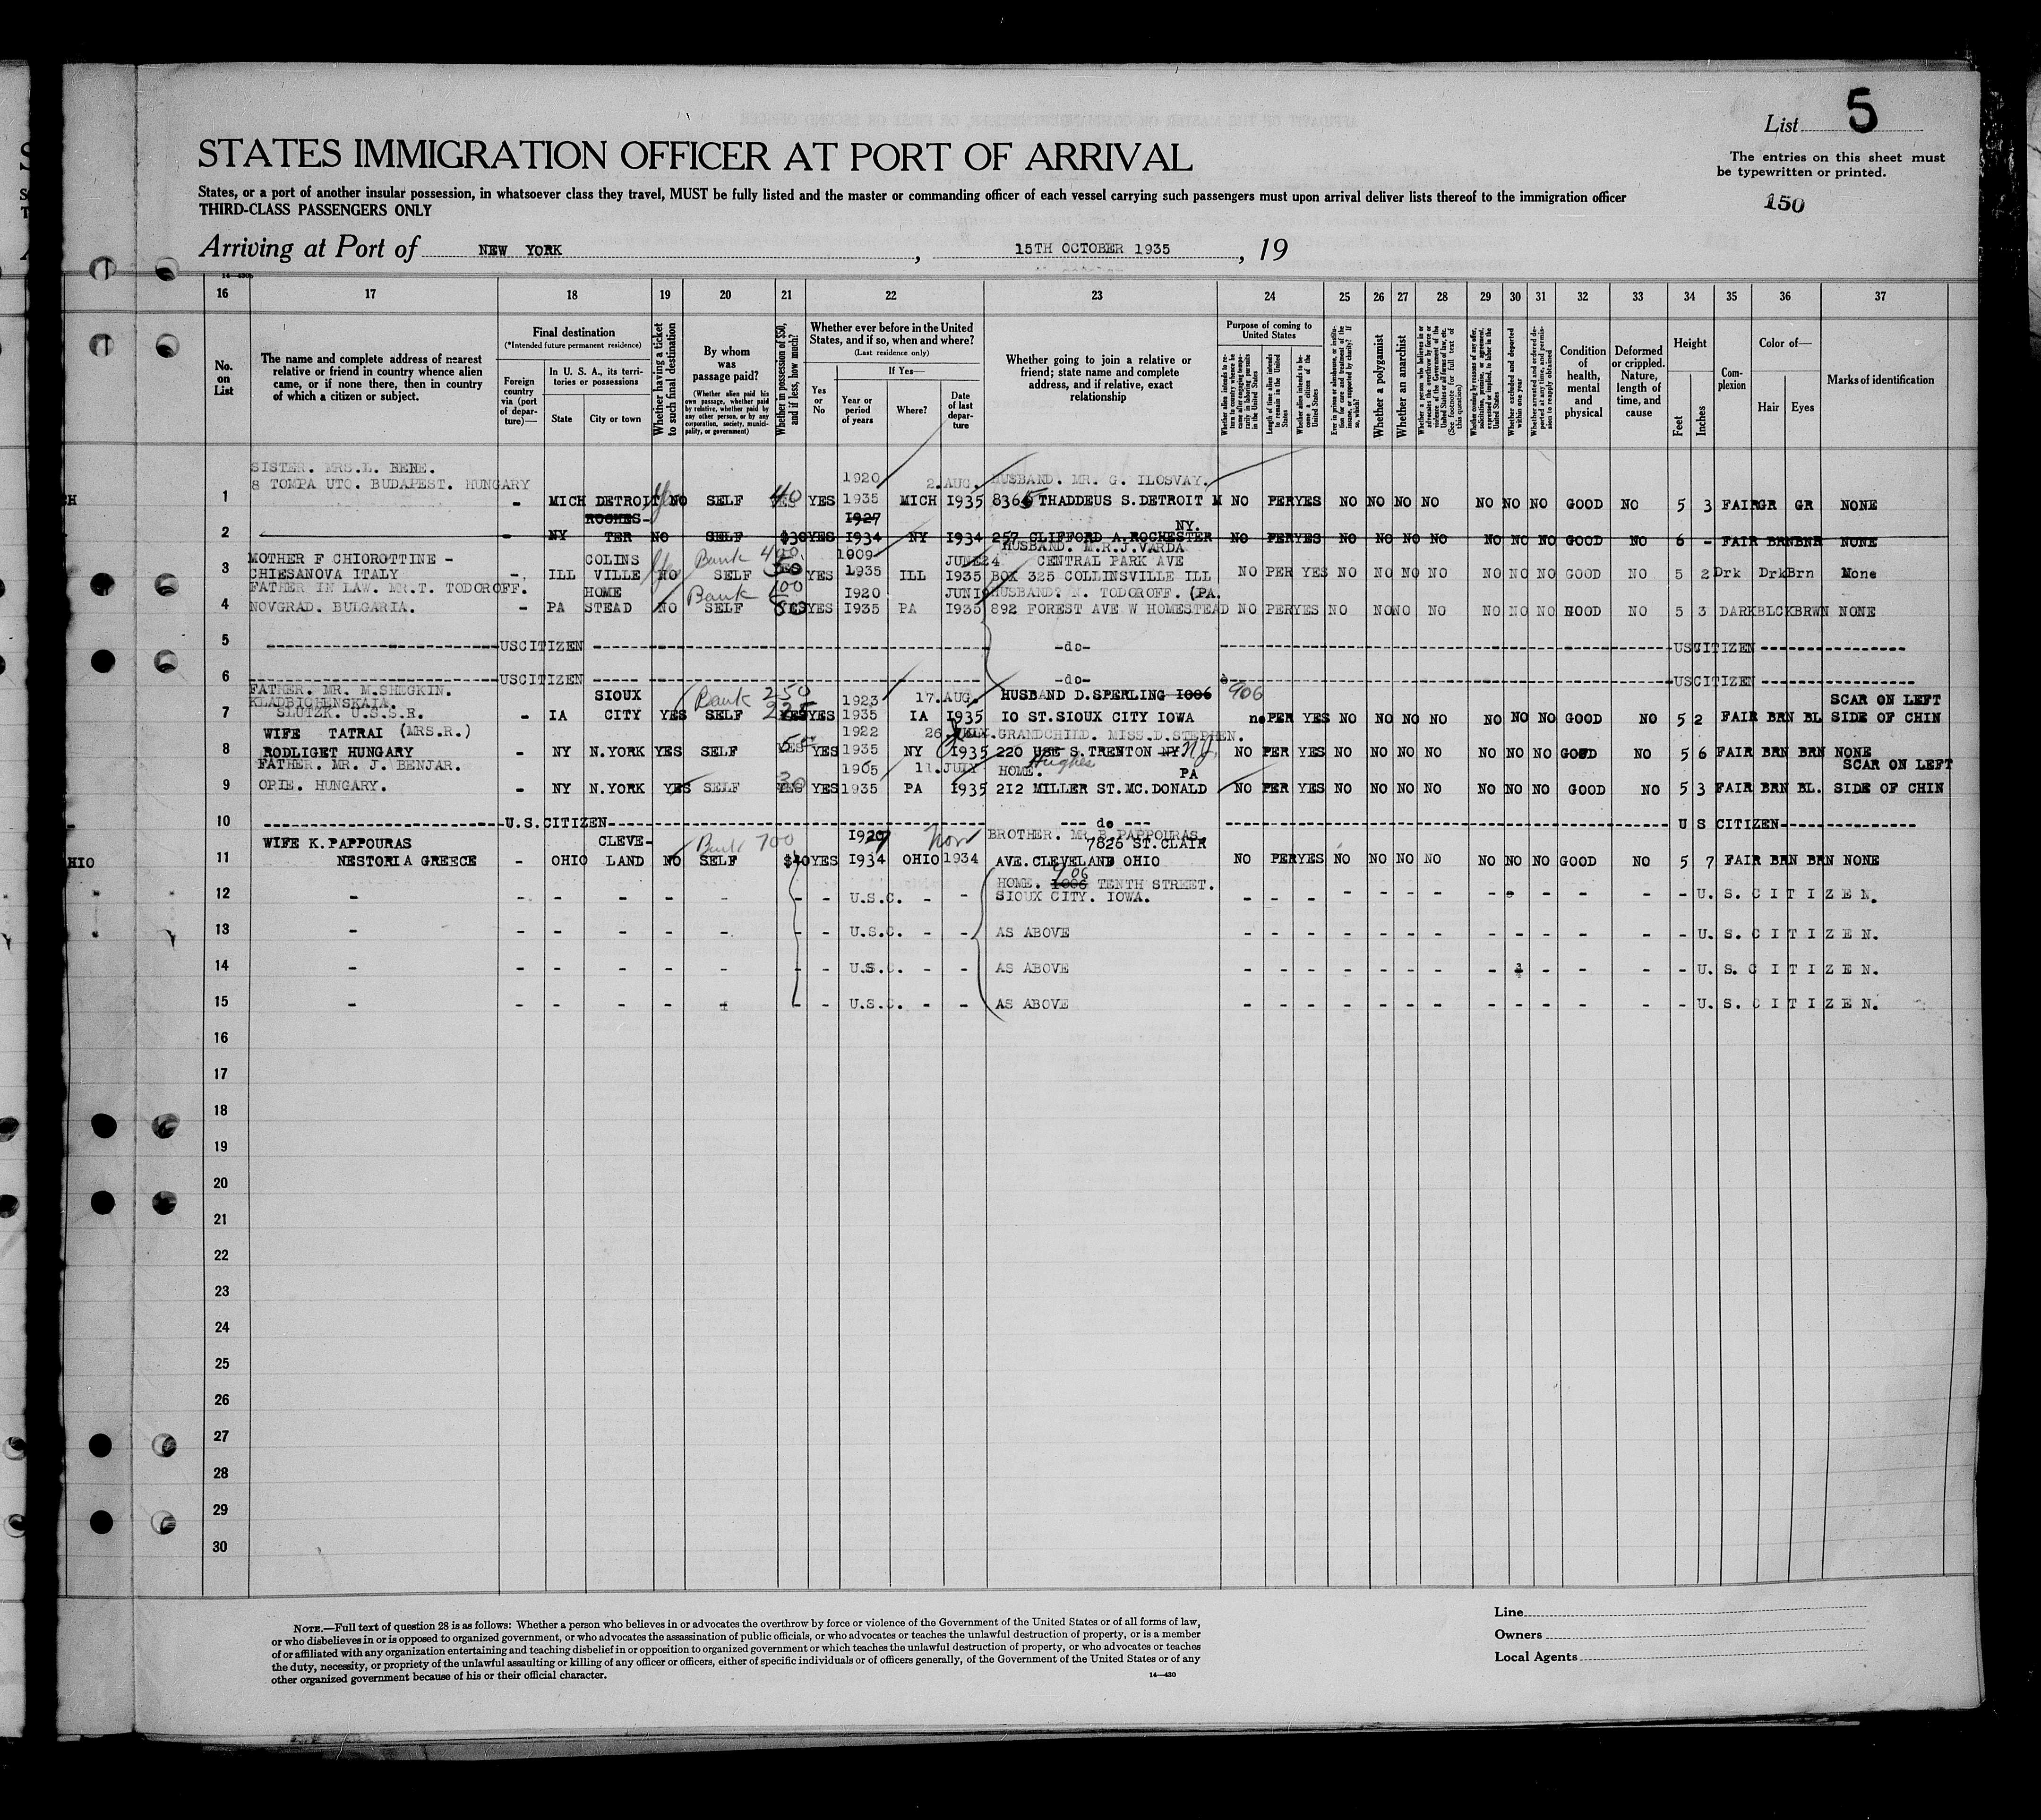 List 5
The entries on this sheet must
be typewritten or printed.
150
STATES IMMIGRATION OFFICER AT PORT OF ARRIVAL
States, or a port of another insular possession, in whatsoever class they travel, MUST be fully listed and the master or commanding officer of each vessel carrying such passengers must upon arrival deliver lists thereof to the immigration officer
THIRD-CLASS PASSENGERS ONLY
Arriving at Port of NEW YORK, 15TH OCTOBER 1935, 19
16 17 18 19 20 21 22 23 24 25 26 27 28 29 30 31 32 33 34 35 36 37
No. on List
The name and complete address of nearest relative or friend in country whence alien came, or if none there, then in country of which a citizen or subject.
Final destination
(*Intended future permanent residence)
Foreign country via (port of departure)—
In U. S. A., its territories or possessions
State
City or town
Whether having a ticket to such final destination
By whom was passage paid?
(Whether alien paid his own passage, whether paid by relative, whether paid by any other person, or by any corporation, society, municipality, or government)
Whether in possession of $50, and if less, how much?
Whether ever before in the United States, and if so, when and where?
(Last residence only)
Yes or No
If Yes—
Year or period of years
Where?
Date of last departure
Whether going to join a relative or friend; state name and complete address, and if relative, exact relationship
Purpose of coming to United States
Length of time alien intends to remain in the United States
Whether alien intends to become a citizen of the United States
Whether a polygamist
Whether an anarchist
Condition of health, mental and physical
Deformed or crippled. Nature, length of time, and cause
Height
Feet
Inches
Complexion
Color of—
Hair
Eyes
Marks of identification
SISTER. MRS.L. BENE.
1920 2.AUG. HUSBAND. MR. G. ILOSVAY.
8 TOMPA UTQ. BUDAPEST. HUNGARY
1 - MICH DETROIT NO SELF 40 YES YES 1935 MICH 1935 8365 THADDEUS S.DETROIT M NO PER YES NO NO NO NO NO NO NO GOOD NO 5 3 FAIR GR GR NONE
ROCHES- 1927 NY.
2 - NY TER NO SELF $30 YES 1934 NY 1934 257 CLIFFORD A.ROCHESTER NO PER YES NO NO NO NO NO NO NO GOOD NO 6 - FAIR BRN BNR NONE
MOTHER F CHIOROTTINE - COLINS Bank 400 1909 JUNE24 HUSBAND. M.R.J.VARDA CENTRAL PARK AVE
3 CHIESANOVA ITALY -. ILL VILLE NO SELF 50 YES 1935 ILL 1935 BOX 325 COLLINSVILLE ILL NO PER YES NO NO NO NO NO NO NO GOOD NO 5 2 Drk Drk Brn None
FATHER IN LAW. MR.T. TODOROFF. HOME Bank 1920 JUN HUSBAND? N. TODOROFF. (PA.
4 NOVGRAD. BULGARIA. - PA STEAD NO SELF YES 1935 PA 1935 892 FOREST AVE W HOMESTEAD NO PER YES NO NO NO NO NO NO NO GOOD NO 5 3 DARK BLCK BRWN NONE
5 USCITIZEN -do- USCITIZEN
6 USCITIZEN -do- USCITIZEN
FATHER. MR. M.SHEGKIN. SIOUX Bank 250 1923 17.AUG. HUSBAND D.SPERLING 1006 906 SCAR ON LEFT
KLADBICHENSKAIA.
7 SLUTZK. U.S.S.R. - IA CITY YES SELF 225 YES YES 1935 IA 1935 IO ST.SIOUX CITY IOWA no PER YES NO NO NO NO NO NO NO GOOD NO 5 2 FAIR BRN BL SIDE OF CHIN
WIFE TATRAI (MRS.R.) 1922 26.JULY. GRANDCHILD. MISS.D.STEPHEN.
8 RODLIGET HUNGARY - NY N.YORK YES SELF YES YES 1935 NY 1935 220 S.TRENTON NY NJ. Hughes NO PER YES NO NO NO NO NO NO NO GOOD NO 5 6 FAIR BRN BRN NONE
FATHER. MR. J. BENJAR. 1905 11.JULY HOME. PA SCAR ON LEFT
9 OPIE. HUNGARY. - NY N.YORK YES SELF 30 YES YES 1935 PA 1935 212 MILLER ST.MC.DONALD NO PER YES NO NO NO NO NO NO NO GOOD NO 5 3 FAIR BRN BL. SIDE OF CHIN
10 U.S.CITIZEN --- do --- U S CITIZEN
WIFE K.PAPPOURAS CLEVE- Bank 700 1927 Nov BROTHER. MR.B.PAPPOURAS. 7826 ST.CLAIR
11 NESTORIA GREECE - OHIO LAND NO SELF $40 YES 1934 OHIO 1934 AVE.CLEVELAND OHIO NO PER YES NO NO NO NO NO NO NO GOOD NO 5 7 FAIR BRN BRN NONE
906
HOME. 1006 TENTH STREET.
12 - U.S.C. - - SIOUX CITY. IOWA. - U. S. C I T I Z E N.
13 - U.S.C. - - AS ABOVE - U. S. C I T I Z E N.
14 - U.S.C. - - AS ABOVE - U. S. C I T I Z E N.
15 - U.S.C. - - AS ABOVE - U. S. C I T I Z E N.
16
17
18
19
20
21
22
23
24
25
26
27
28
29
30
NOTE.—Full text of question 28 is as follows: Whether a person who believes in or advocates the overthrow by force or violence of the Government of the United States or of all forms of law,
or who disbelieves in or is opposed to organized government, or who advocates the assassination of public officials, or who advocates or teaches the unlawful destruction of property, or is a member
of or affiliated with any organization entertaining and teaching disbelief in or opposition to organized government or which teaches the unlawful destruction of property, or who advocates or teaches
the duty, necessity, or propriety of the unlawful assaulting or killing of any officer or officers, either of specific individuals or of officers generally, of the Government of the United States or of any
other organized government because of his or their official character.
14—430
Line
Owners
Local Agents